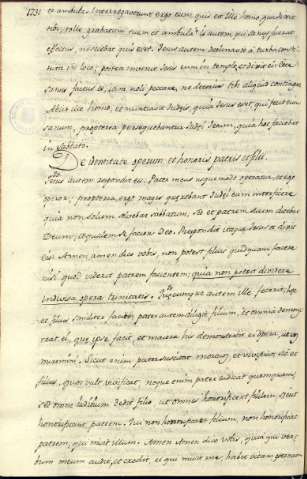 et ambula. Interrogaverunt ergo eum quis est ille homo qui dixit
tibi, tolle grabatum tuum et ambula? Is autem qui sanus fuerat
effectus, nesciebat quis esset. Jesus autem declinavit a turba consti
tuta in loco; postea invenit Jesus eum in templo, et dixit ei: Ecce
sanus factus es, iam noli peccare, ne deterius tibi aliquid contingat
Abiit ille homo, et nuntiavit Judeis, quia Jesus esset qui fecit eum
sanum, propterea persequebantur Judei Jesum, quia hoc faciebat
in sabbato.
De Identitate operum et honoris patris et filii.
Jesus autem respondit eis. Pater meus usque modo operatur, et ego
operor; propterea, ergo magis quærebant Judei eum interficere
quia non solum solvebat sabbatum, sed et patrem suum dicebat
Deum, æqualem se faciens Deo. Respondit itaque Jesus et dixit
eis. Amen, amen dico vobis, non potest filius quidquam facere
nisi quod viderit patrem facientem; quia non potest dividere
indivisa opera trinitatis. Quæcumque autem ille fecerit, hoc
et filius similiter facit; pater autem diligit filium, et omnia demons
trat ei, quæ ipse facit, et maiora his demonstrabit ei opera, ut vos
miremini. Sicut enim pater suscitat mortuos, et vivificat, sic et
filius, quos vult vivificat, neque enim pater iudicat quemquam,
sed omne iudicium dedit filio ut omnes honorificent filium, sicut
honorificant patrem. Qui non honorificat filium, non honorificat
patrem, qui misit illum. Amen Amen dico vobis, quia qui ver
bum meum audit, et credit, ei qui misit me, habet vitam æternam